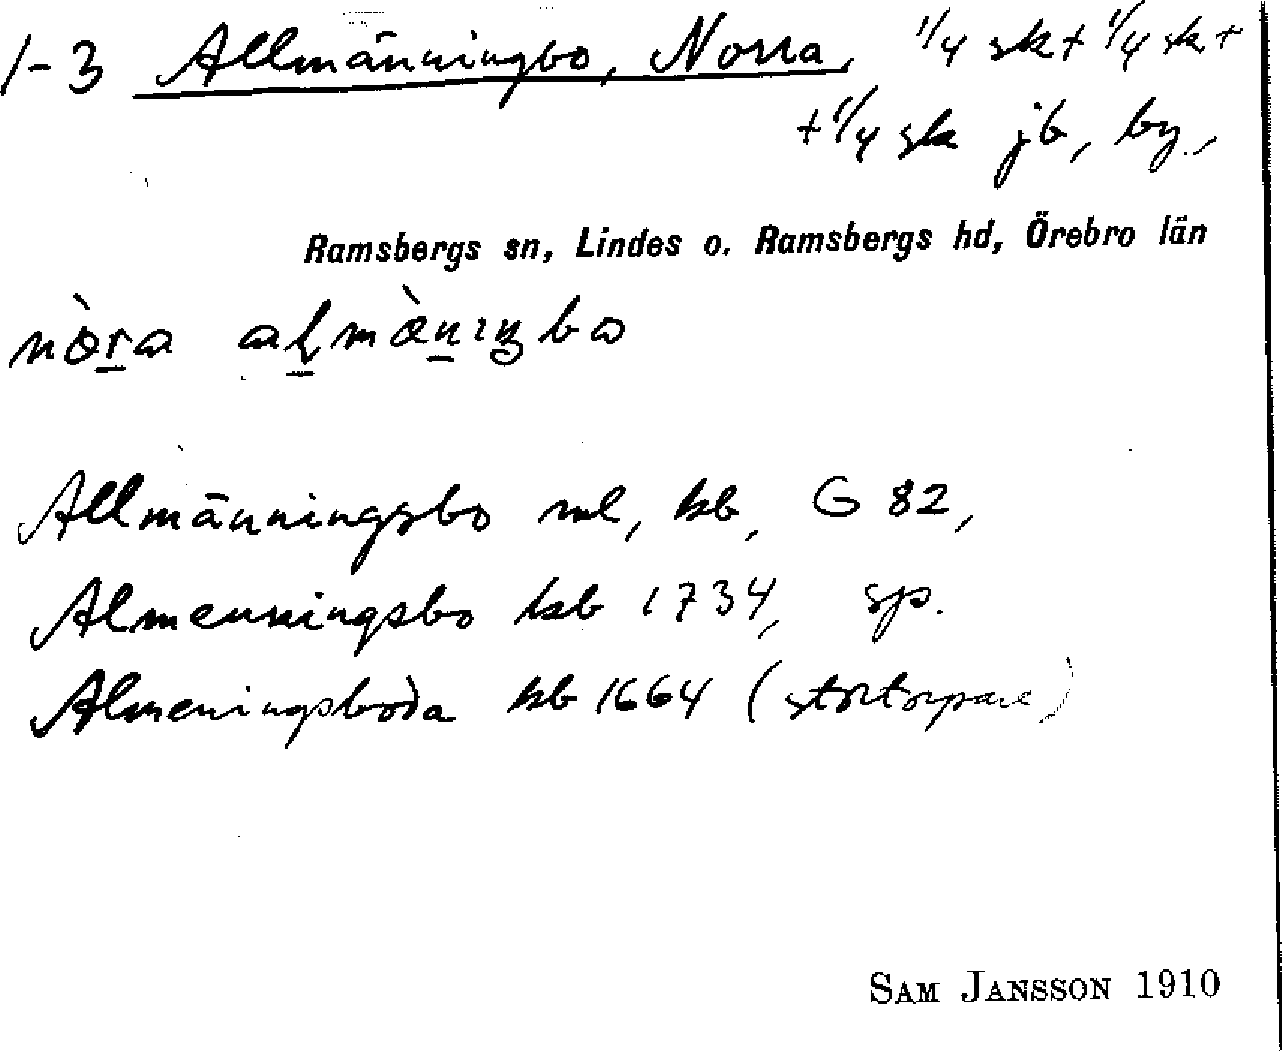 1-3 Allmänningbo, Norra, 1/4 sk + 1/4 sk +
+ 1/4 sk jb, by.,
Ramsbergs sn, Lindes o. Ramsbergs hd, Örebro län
nòra almànıŋbo
Allmänningsbo ml, kb, G 82,
Almenningsbo kb 1734, sp.
Almeningsboda kb 1664 (stortorpare)
SAM JANSSON 1910